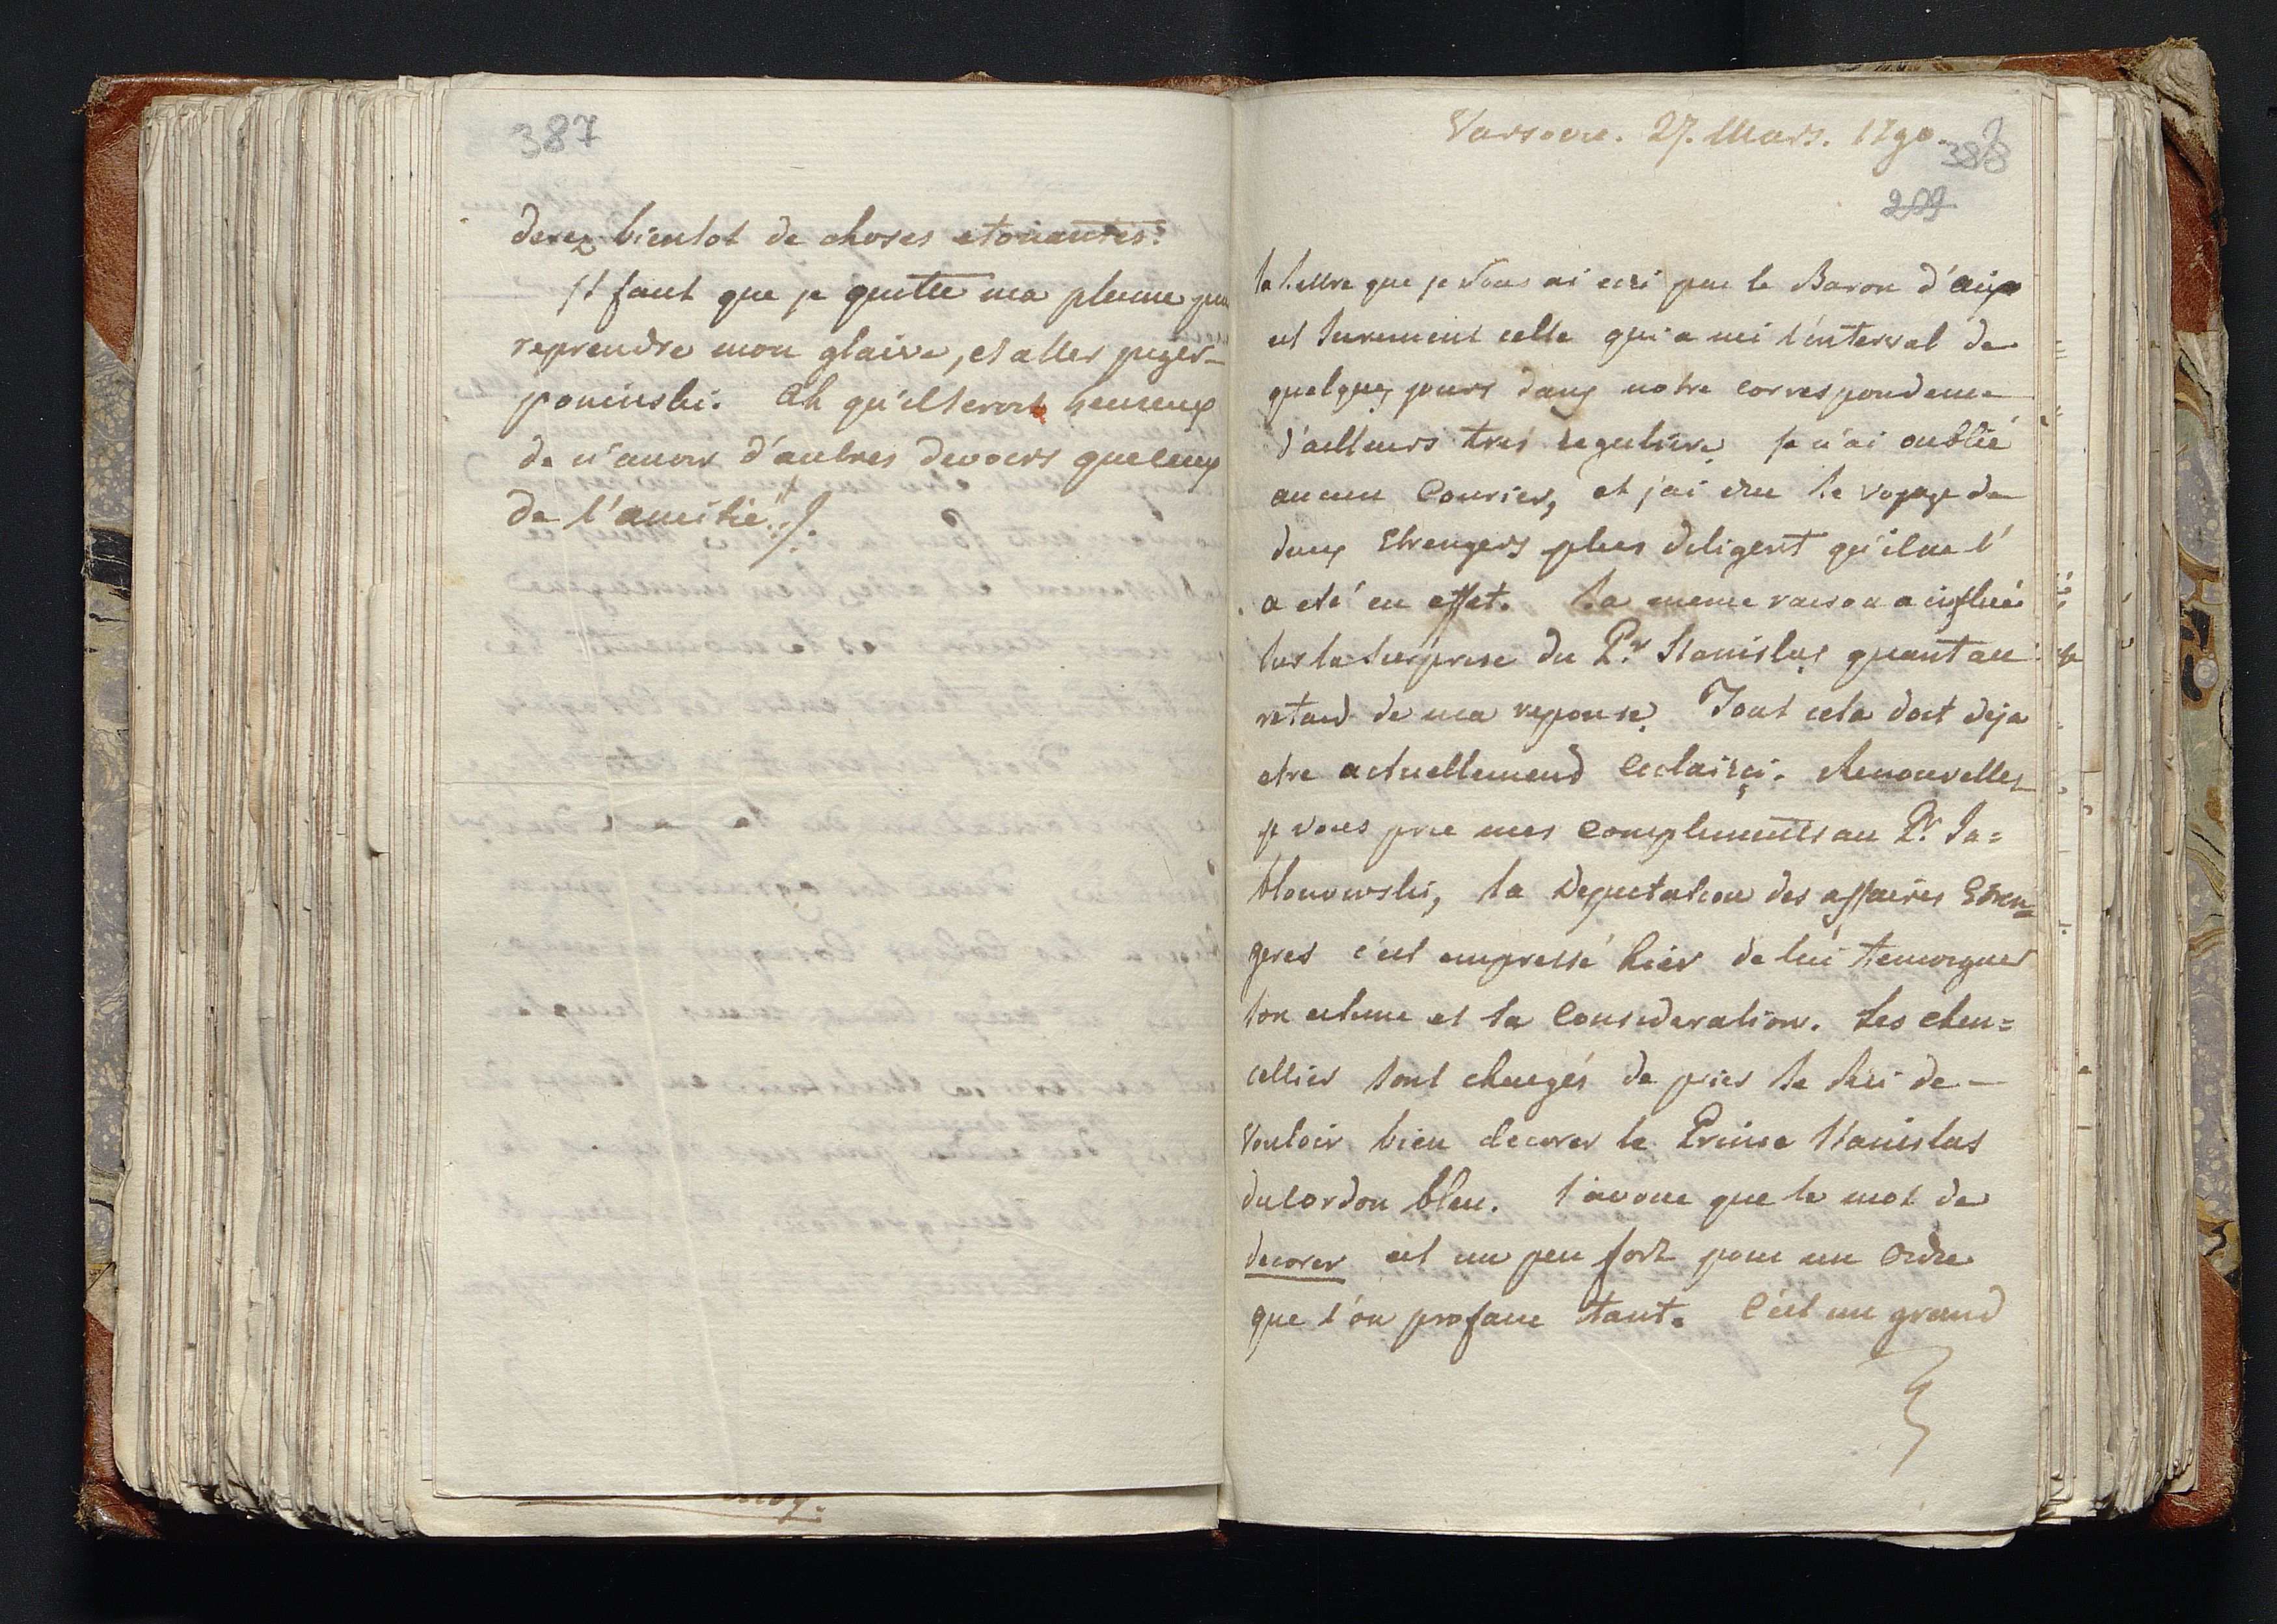 387
derez bientot de choses etonantes.
Il faut que je quitte ma plume pour
reprendre mon glaive, et aller juger
poninski. Ah qu'il seroit heureux
de n'avoir d'autres devoirs que ceux
de l'amitié ./.
Varsovie. 27. Mars. 1790.
388
209
la lettre que je vous ai ecri par le Baron d'aix
est surement celle qui a mi l'interval de
quelques jours dans notre correspondence
d'ailleurs tres reguliere, Je n'ai oublié
aucun Courier, et j'ai cru le voyage de
deux Etrangers plus diligent qu'il ne l'
a eté en effet. La meme raison a influé
sur la surprise du Pr Stanislas quant au
retard de ma reponse. Tout cela doit deja
etre actuellemend Eclairçi. Renouvelles
je vous prie mes Compliments au Pr Ja=
blonowski, la Deputation des affaires Etran=
geres c'est empressé hier de lui temoigner
son estime et sa Consideration. Les chan=
cellier sont chargés de prier le Roi de
Vouloir bien decorer le Prince Stanislas
du Cordon bleu. J'avoue que le mot de
decorer est un peu fort pour un Ordre
que l'on profane tant. C'est un grand